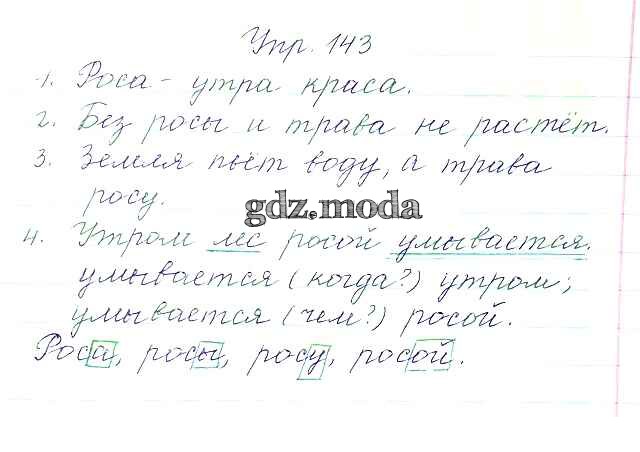 Упр. 143
1. Роса - утра краса.
2. Без росы и трава не растёт.
3. Земля пьёт воду, а трава
росу.
gdz.moda
4. Утром лес росой умывается.
умывается (когда?) утром;
умывается (чем?) росой.
Роса, росы, росу, росой.